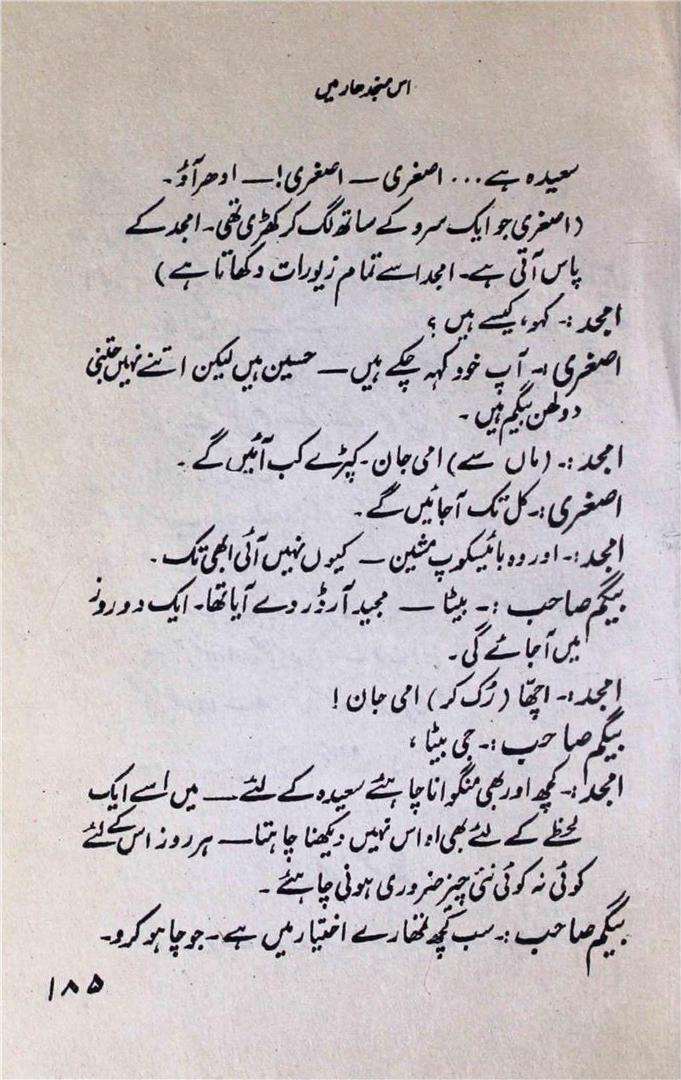 اس منجدھار میں
سعیدہ ہے... اصغری — اصغری! — ادھر آؤ۔
(اصغری جو ایک سرو کے ساتھ لگ کر کھڑی تھی۔ امجد کے
پاس آتی ہے۔ امجد اسے تمام زیورات دکھاتا ہے)
امجد :۔ کہو، کیسے ہیں ؟
اصغری :۔ آپ خود کہہ چکے ہیں — حسین ہیں لیکن اتنے نہیں جتنی
دولھن بیگم ہیں ۔
امجد :۔ (ماں سے) امی جان۔ کپڑے کب آئیں گے ۔
اصغری :۔ کل تک آجائیں گے ۔
امجد :۔ اور وہ بائیسکوپ مشین — کیوں نہیں آئی ابھی تک ۔
بیگم صاحب :۔ بیٹا — مجید آرڈر دے آیا تھا۔ ایک دو روز
میں آجائے گی ۔
امجد :۔ اچھّا (رُک کر) امی جان !
بیگم صاحب :۔ جی بیٹا ،
امجد :۔ کچھ اور بھی منگوانا چاہئے سعیدہ کے لئے — میں اسے ایک
لحظے کے لئے بھی اداس نہیں دیکھنا چاہتا — ہر روز اس کے لئے
کوئی نہ کوئی نئی چیز ضروری ہونی چاہئے ۔
بیگم صاحب :۔ سب کچھ تمھارے اختیار میں ہے ۔ جو چاہو کرو۔
۱۸۵